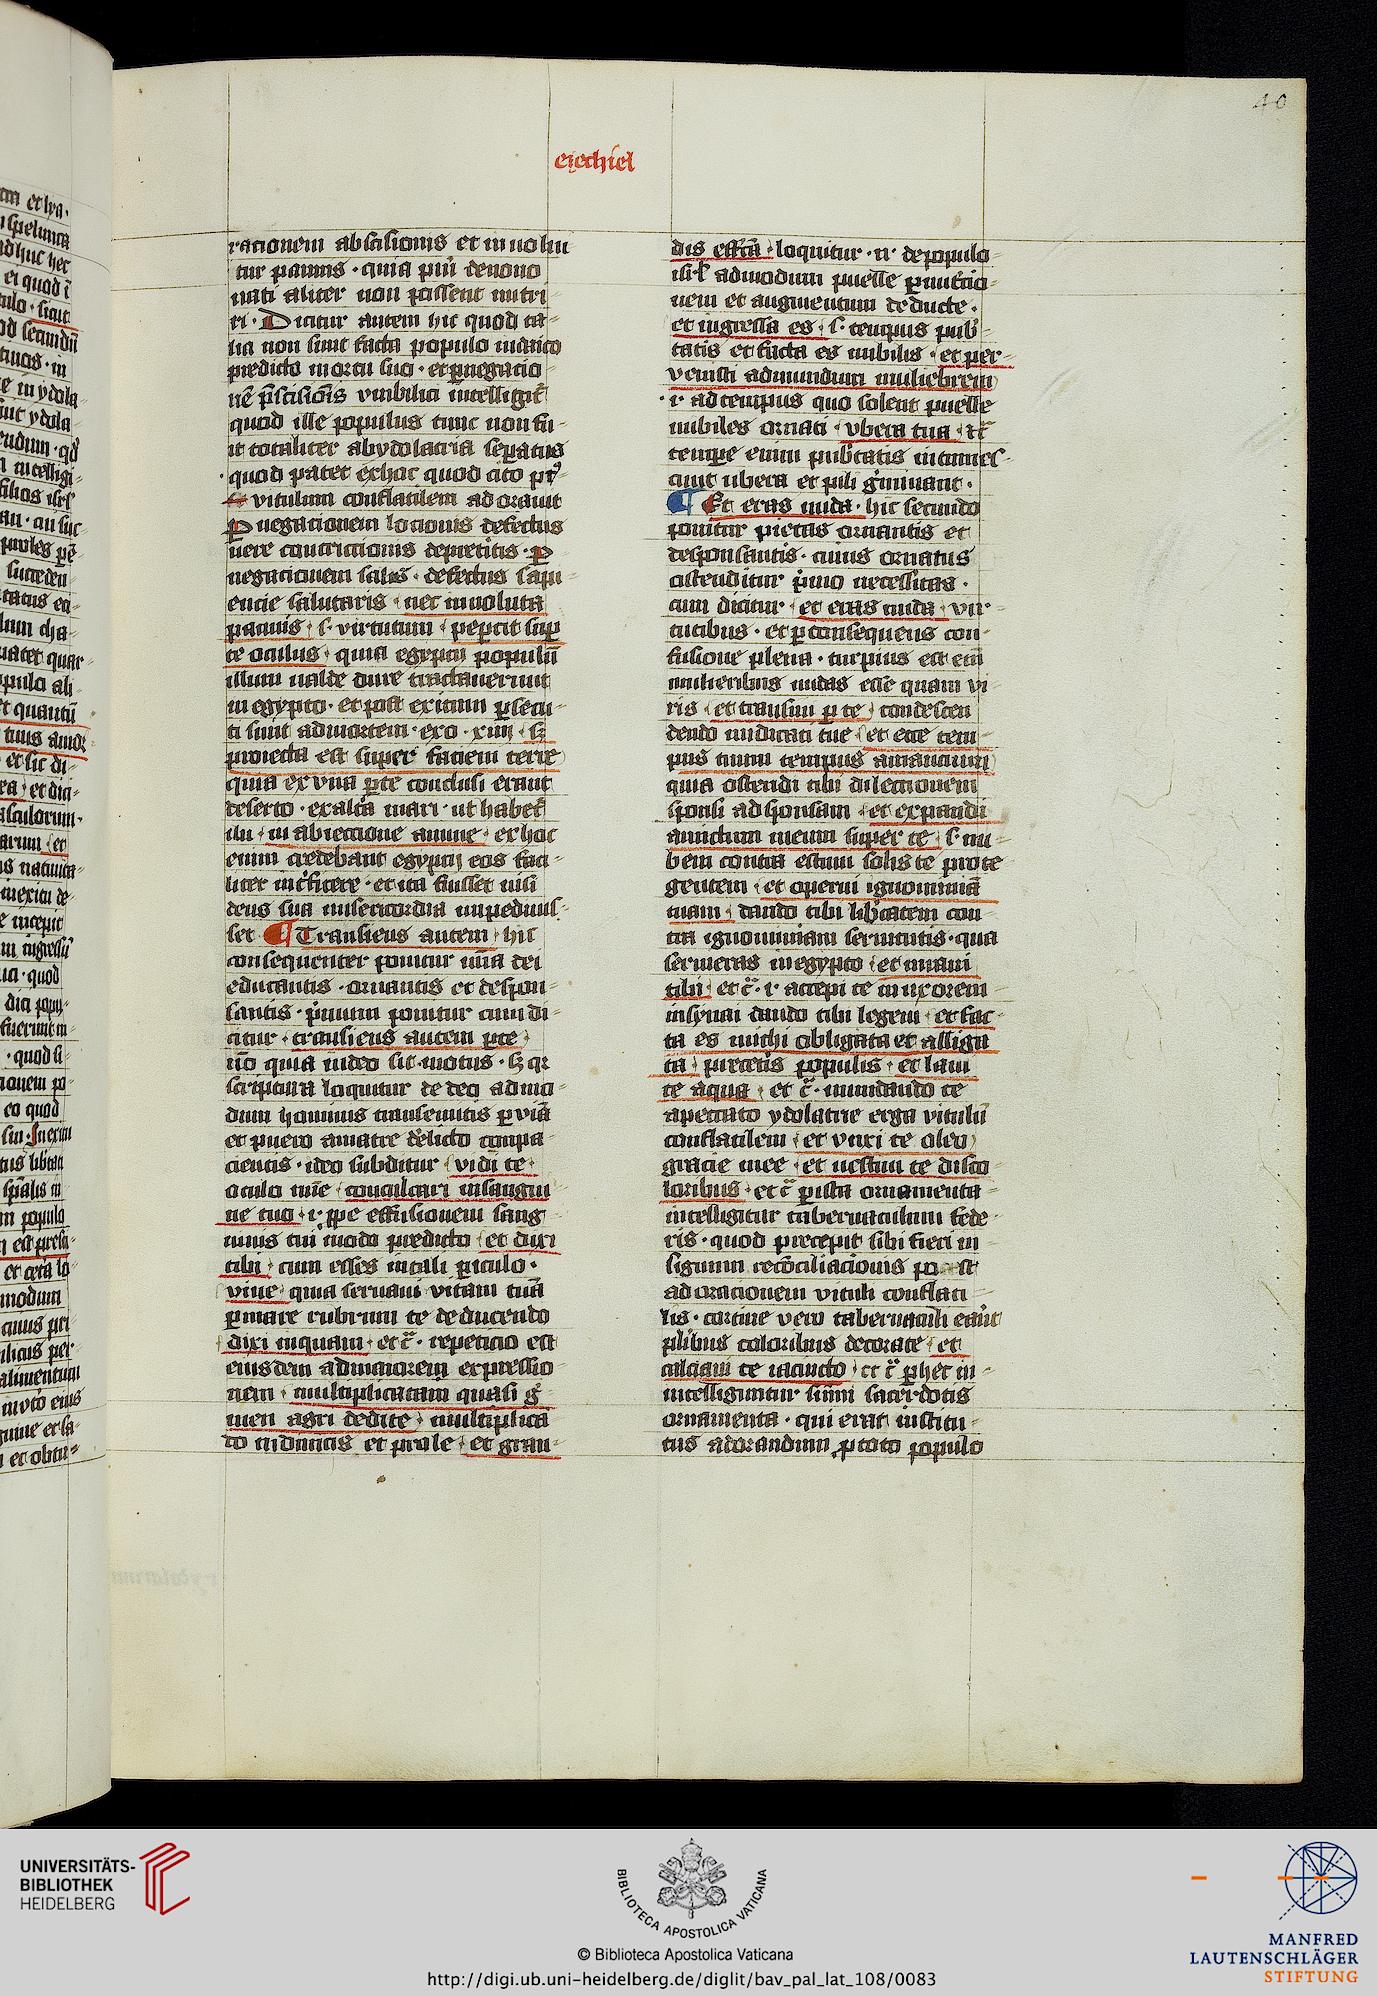 40
ezechiel
racionem abscisionis et inuolui
tur pannis · quia pueri denouo
nati aliter non possent nutri
ri · Dicitur autem hic quod ta
lia non sunt facta populo iudaico
predicto mortu suo · et per negacio
nem prescisionis vmbilici intelligitur
quod ille populus tunc non fu
it totaliter ab ydolatria seperatus
quod patet ex hoc quod cito post
vitulum conflatilem adorauit
Per negacionem locionis defectus
uere contricionis de preteritis · per
negacionem salis · defectus sapi
encie salutaris · nec inuoluta
pannis · s · virtutum · pepercit super
te oculus · quia egypcii populum
illum ualde dure tractauerunt
in egypto · et post exitum persecu
ti sunt ad mortem · exo · xiiii · sed
proiecta est super faciem terre
quia ex vna parte conclusi erant
deserto · ex alia mari · ut habetur
ibi · in abiectione anime · ex hoc
enim credebant egypcij eos faci
liter interficere · et ita fuisset nisi
deus sua misericordia impediuis
set · ¶ Transiens autem · hic
consequenter ponitur misericordia dei
educantis · ornantis et despon
santis · primum ponitur cum di
citur · transiens autem per te
non quia in deo sit motus · sed quia
scriptura loquitur de deo ad mo
dum hominis transeuntis per viam
et puero a matre derelicto compa
cientis · ideo subditur · vidi te
oculo misericordie · conculcari in sangui
ne tuo · i · prope effusionem sang
uinis tui modo predicto · et dixi
tibi · cum esses in tali periculo ·
viue · quia seruaui vitam tuam
per mare rubrum te deducendo
dixi inquam · etc · repeticio est
eiusdem ad maiorem expressio
nem · multiplicatam quasi ger
men agri dedi te · multiplica
to in diuiciis et prole · et gran
dis effecta · loquitur enim de populo
israel ad modum puelle per nutricio
nem et augmentum deducte ·
et ingressa es · s · tempus puber
tatis et facta es nubilis · et per
uenisti ad mundum muliebrem
· i · ad tempus quo solent puelle
nubiles ornari · vbera tua · etc
tempore enim pubertatis intumes
cunt ubera et pili germinant ·
¶ Et eras nuda · hic secundo
ponitur pietas ornantis et
desponsantis · cuius ornatus
ostenditur primo necessitas ·
cum dicitur · et eras nuda · vir
tutibus · et per consequens con
fusione plena · turpius est enim
mulieribus nudas esse quam vi
ris · et transiui per te · condescen
dendo mendicitati tue · et ecce tem
pus tuum tempus amancium
quia ostendi tibi dilectionem
sponsi ad sponsam · et expandi
amictum meum super te · s · nu
bem contra estum solis te prote
gentem · et operui ignominiam
tuam · dando tibi libertatem con
tra ignominiam seruitutis · qua
seruieras in egypto · et iuraui
tibi · etc · i · accepi te in uxorem
in synai dando tibi legem · et fac
ta es michi obligata et alliga
ta · pre ceteris populis · et laui
te aqua · etc · mundando te
a peccato ydolatrie erga vitulum
conflatilem · et vnxi te oleo
gracie mee · et uestiui te disco
loribus · etc per ista ornamenta
intelligitur tabernaculum fede
ris · quod precepit sibi fieri in
signum reconciliacionis post
adoracionem vituli conflati
lis · cortine vero tabernaculi erant
pluribus coloribus decorate · et
calciaui te iacincto · etc per hec in
intelliguntur summi sacerdotis
ornamenta · qui erat institu
tus ad orandum pro toto populo
UNIVERSITÄTS-
BIBLIOTHEK
HEIDELBERG
BIBLIOTECA APOSTOLICA VATICANA
© Biblioteca Apostolica Vaticana
http://digi.ub.uni-heidelberg.de/diglit/bav_pal_lat_108/0083
MANFRED
LAUTENSCHLÄGER
STIFTUNG